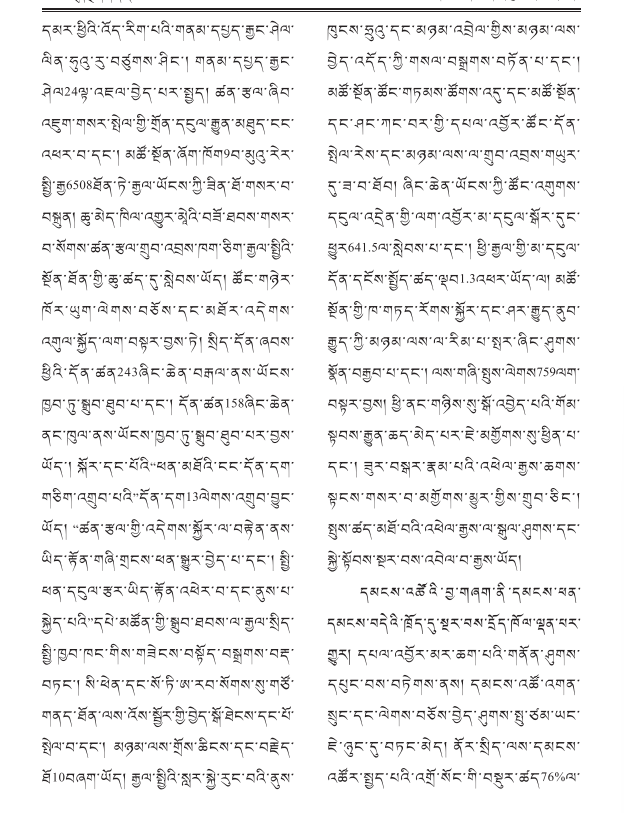 དམར་ཕྱིའི་འོད་རིག་པའི་གནམ་དཔྱད་རྒྱང་ཤེལ་
ལིན་ཧུའུ་རུ་བཙུགས་ཤིང་། གནམ་དཔྱད་རྒྱང་
ཤེལ24ལྟ་འཇལ་བྱེད་པར་སྤྱད། ཚན་རྩལ་ཞིབ་
འཇུག་གསར་སྤེལ་གྱི་གྲོན་དངུལ་རྒྱུན་མཐུད་ངང་
འཕར་བ་དང་། མཚོ་སྔོན་ཞོག་ཁོག9བ་མུའུ་རེར་
སྤྱི་རྒྱ6508ཐོན་ཏེ་རྒྱལ་ཡོངས་ཀྱི་ཟིན་ཐོ་གསར་བ་
བསྐྲུན། ཆུ་མེད་ཁིལ་འགྱུར་མྱེའི་བཟོ་ཐབས་གསར་
བ་སོགས་ཚན་རྩལ་གྲུབ་འབྲས་ཁག་ཅིག་རྒྱལ་སྤྱིའི་
སྔོན་ཐོན་གྱི་ཆུ་ཚད་དུ་སླེབས་ཡོད། ཚོང་གཉེར་
ཁོར་ཡུག་ལེགས་བཅོས་དང་མཐོར་འདེགས་
འགུལ་སྐྱོད་ལག་བསྟར་བྱས་ཏེ། སྲིད་དོན་ཞབས་
ཕྱིའི་དོན་ཚན243ཞིང་ཆེན་བརྒལ་ནས་ཡོངས་
ཁྱབ་ཏུ་སྒྲུབ་ཐུབ་པ་དང་། དོན་ཚན158ཞིང་ཆེན་
ནང་ཁུལ་ནས་ཡོངས་ཁྱབ་ཏུ་སྒྲུབ་ཐུབ་པར་བྱས་
ཡོད། སྐོར་དང་པོའི“ཕན་མཐོའི་ངང་དོན་དག་
གཅིག་འགྲུབ་པའི”དོན་དག13ལེགས་འགྲུབ་བྱུང་
ཡོད། “ཚན་རྩལ་གྱི་འདེགས་སྐྱོར་ལ་བརྟེན་ནས་
ཡིད་རྟོན་གཞི་གྲངས་ཕན་སྒྱུར་བྱེད་པ་དང་། སྤྱི་
ཕན་དངུལ་རྩར་ཡིད་རྟོན་འཕེར་བ་དང་ནུས་པ་
སྐྱེད་པའི”དཔེ་མཚོན་གྱི་སྒྲུབ་ཐབས་ལ་རྒྱལ་སྲིད་
སྤྱི་ཁྱབ་ཁང་གིས་གཟེངས་བསྟོད་བསྒྲགས་བརྡ་
བཏང་། སི་ཕེན་དང་སོ་ཏི་ཨ་རབ་སོགས་སུ་གཙོ་
གནད་ཐོན་ལས་འོས་སྦྱོར་གྱི་བྱེད་སྒོ་ཐེངས་དང་པོ་
སྤེལ་བ་དང་། མཉམ་ལས་གྲོས་ཆིངས་དང་བརྗེད་
ཐོ10བཞག་ཡོད། རྒྱལ་སྤྱིའི་སླར་སྐྱེ་རུང་བའི་ནུས་
ཁུངས་ཧྲུའུ་དང་མཉམ་འབྲེལ་གྱིས་མཉམ་ལས་
བྱེད་འདོད་ཀྱི་གསལ་བསྒྲགས་བཏོན་པ་དང་།
མཚོ་སྔོན་ཚོང་གཏམས་ཚོགས་འདུ་དང་མཚོ་སྔོན་
དང་ཤང་ཀང་བར་གྱི་དཔལ་འབྱོར་ཚོང་དོན་
སྤེལ་རེས་དང་མཉམ་ལས་ལ་གྲུབ་འབྲས་གཡུར་
དུ་ཟ་བ་ཐོབ། ཞིང་ཆེན་ཡོངས་ཀྱི་ཚོང་འགུགས་
དངུལ་འདྲེན་གྱི་ལག་འབྱོར་མ་དངུལ་སྒོར་དུང་
ཕྱུར641.5ལ་སླེབས་པ་དང་། ཕྱི་རྒྱལ་གྱི་མ་དངུལ་
དོན་དངོས་སྤྱོད་ཚད་ལྡབ1.3འཕར་ཡོད་ལ། མཚོ་
སྔོན་གྱི་ཁ་གཏད་རོགས་སྐྱོར་དང་ཤར་རྒྱུད་ནུབ་
རྒྱུད་ཀྱི་མཉམ་ལས་ལ་རིམ་པ་སྤར་ཞིང་ཤུགས་
སྣོན་བརྒྱབ་པ་དང་། ལས་གཞི་སྤུས་ལེགས759ལག་
བསྟར་བྱས། ཕྱི་ནང་གཉིས་སུ་སྒོ་འབྱེད་པའི་གོམ་
སྟབས་རྒྱུན་ཆད་མེད་པར་ཇེ་མགྱོགས་སུ་ཕྱིན་པ་
དང་། ཟུར་བསྐར་རྣམ་པའི་འཕེལ་རྒྱས་ཆགས་
སྟངས་གསར་བ་མགྱོགས་མྱུར་གྱིས་གྲུབ་ཅིང་།
སྤུས་ཚད་མཐོ་བའི་འཕེལ་རྒྱས་ལ་སྐུལ་ཤུགས་དང་
སྐྱེ་སྟོབས་སྔར་བས་འབེལ་བ་རྒྱས་ཡོད།
དམངས་འཚོ་འི་བྱ་གཞག་ནི་དམངས་ཕན་
དམངས་བདེའི་ཁྲོད་དུ་སྔར་བས་དྲོད་ཁོལ་ལྡན་པར་
གྱུར། དཔལ་འབྱོར་མར་ཆག་པའི་གནོན་ཤུགས་
དཔུང་བས་བཏེགས་ནས། དམངས་འཚོ་འགན་
སྲུང་དང་ལེགས་བཅོས་བྱེད་ཤུགས་སྤུ་ཙམ་ཡང་
ཇེ་ཉུང་དུ་བཏང་མེད། ནོར་སྲིད་ལས་དམངས་
འཚོར་སྤྱད་པའི་འགྲོ་སོང་གི་བསྡུར་ཚད76%ལ་